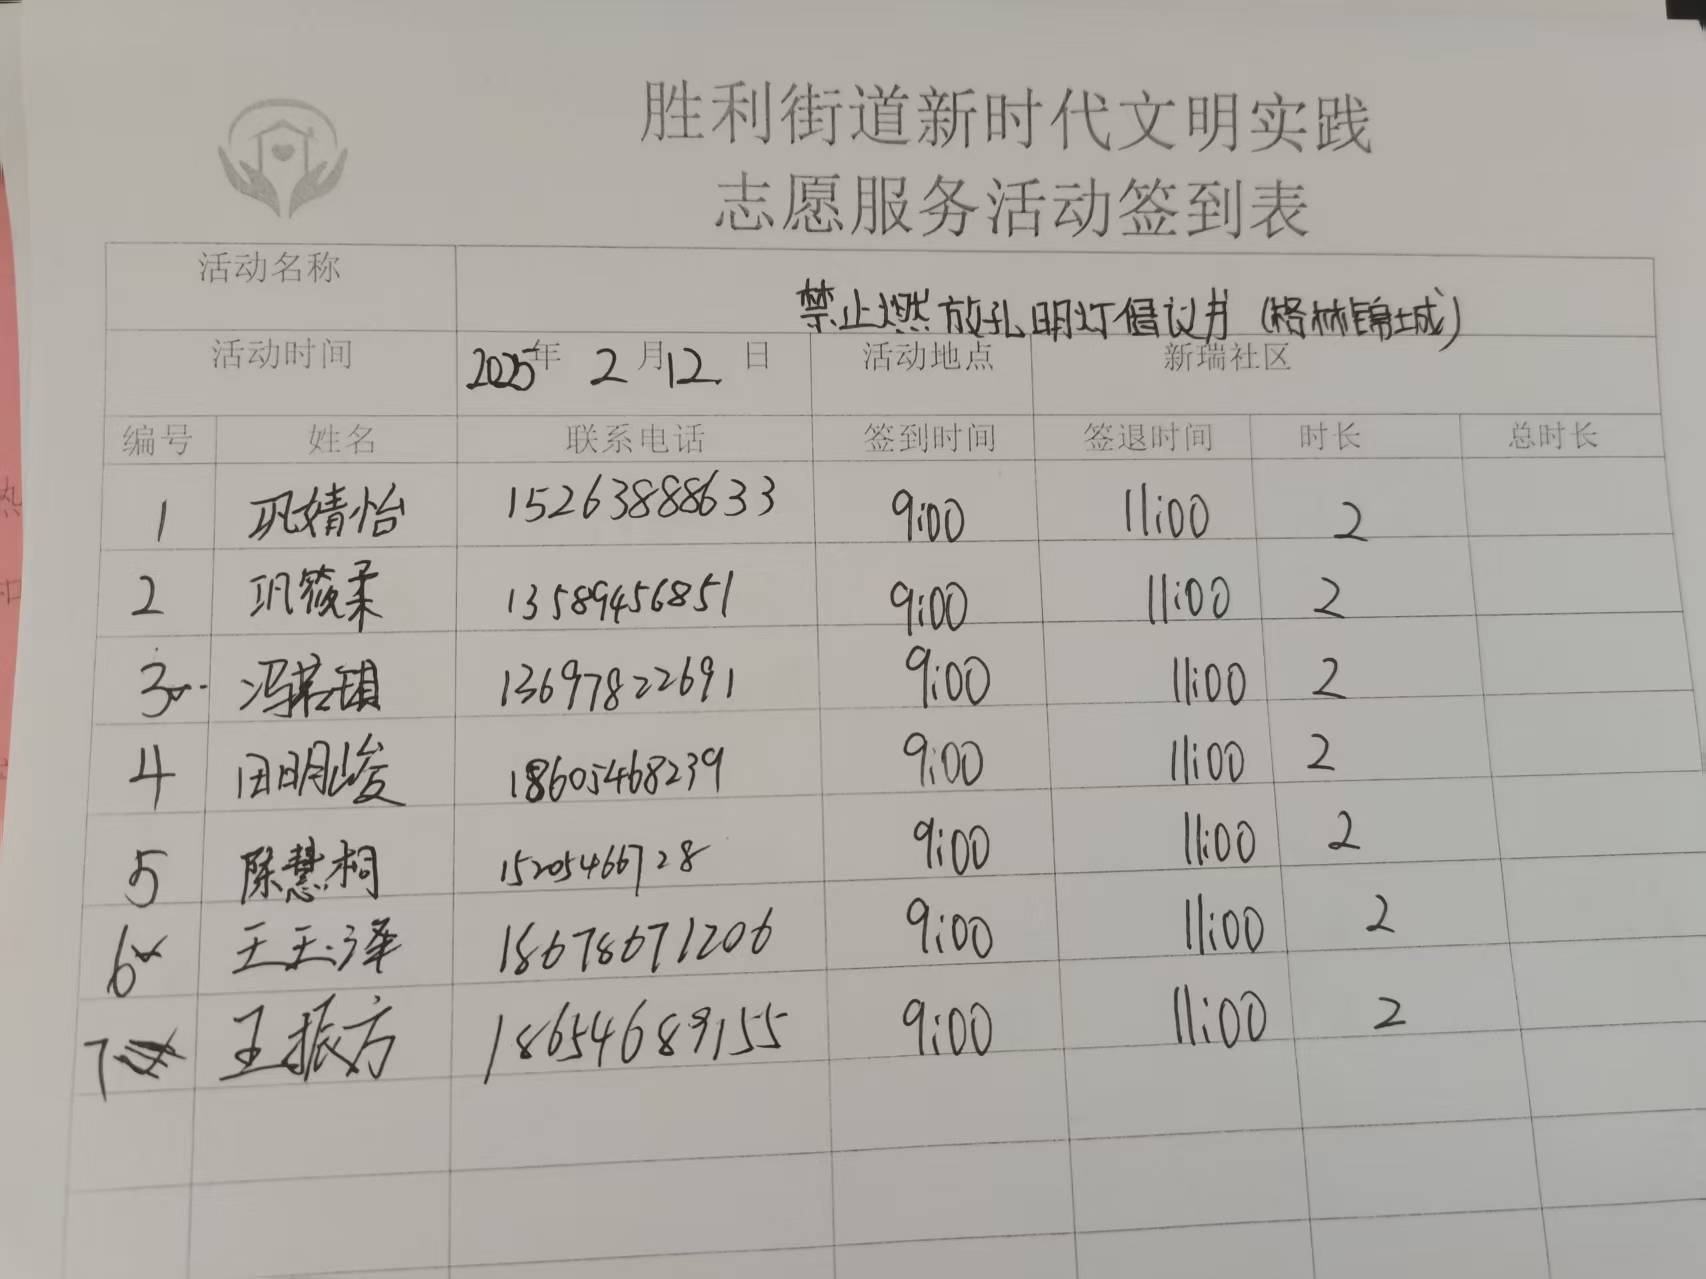 胜利街道新时代文明实践
志愿服务活动签到表
活动名称 禁止燃放孔明灯倡议书（格林锦城）
活动时间 2025年 2月12日 活动地点 新瑞社区
编号 姓名 联系电话 签到时间 签退时间 时长 总时长
1 巩婧怡 15263888633 9:00 11:00 2
2 巩筱柔 13589456851 9:00 11:00 2
3 冯若 13697822691 9:00 11:00 2
4 田明峻 18605468239 9:00 11:00 2
5 陈慧桐 15205466728 9:00 11:00 2
6 王玉泽 18678671206 9:00 11:00 2
7 王振方 18654689155 9:00 11:00 2